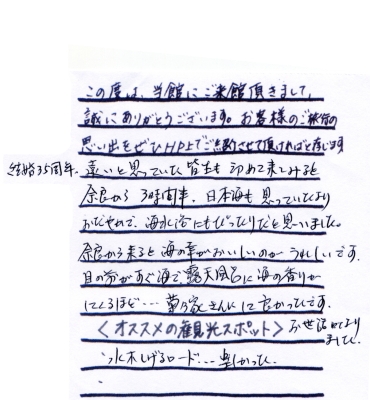 この度は、当館にご来館頂きまして、
誠にありがとうございます。お客様のご旅行の
思い出をぜひHP上でご紹介させて頂ければと存じます
結婚35周年、遠いと思っていた皆生も初めて来てみると
奈良から3時間半、日本海も思っていたより
おだやかで、海水浴にもぴったりだと思いました。
奈良から来ると海の幸がおいしいのがうれしいです。
目の前がすぐ海で、露天風呂に海の香りが
してくるほど… 菊乃家さんにて良かったです。
<オススメの観光スポット> お世話になり
ました。
水木しげるロード… 楽しかった。